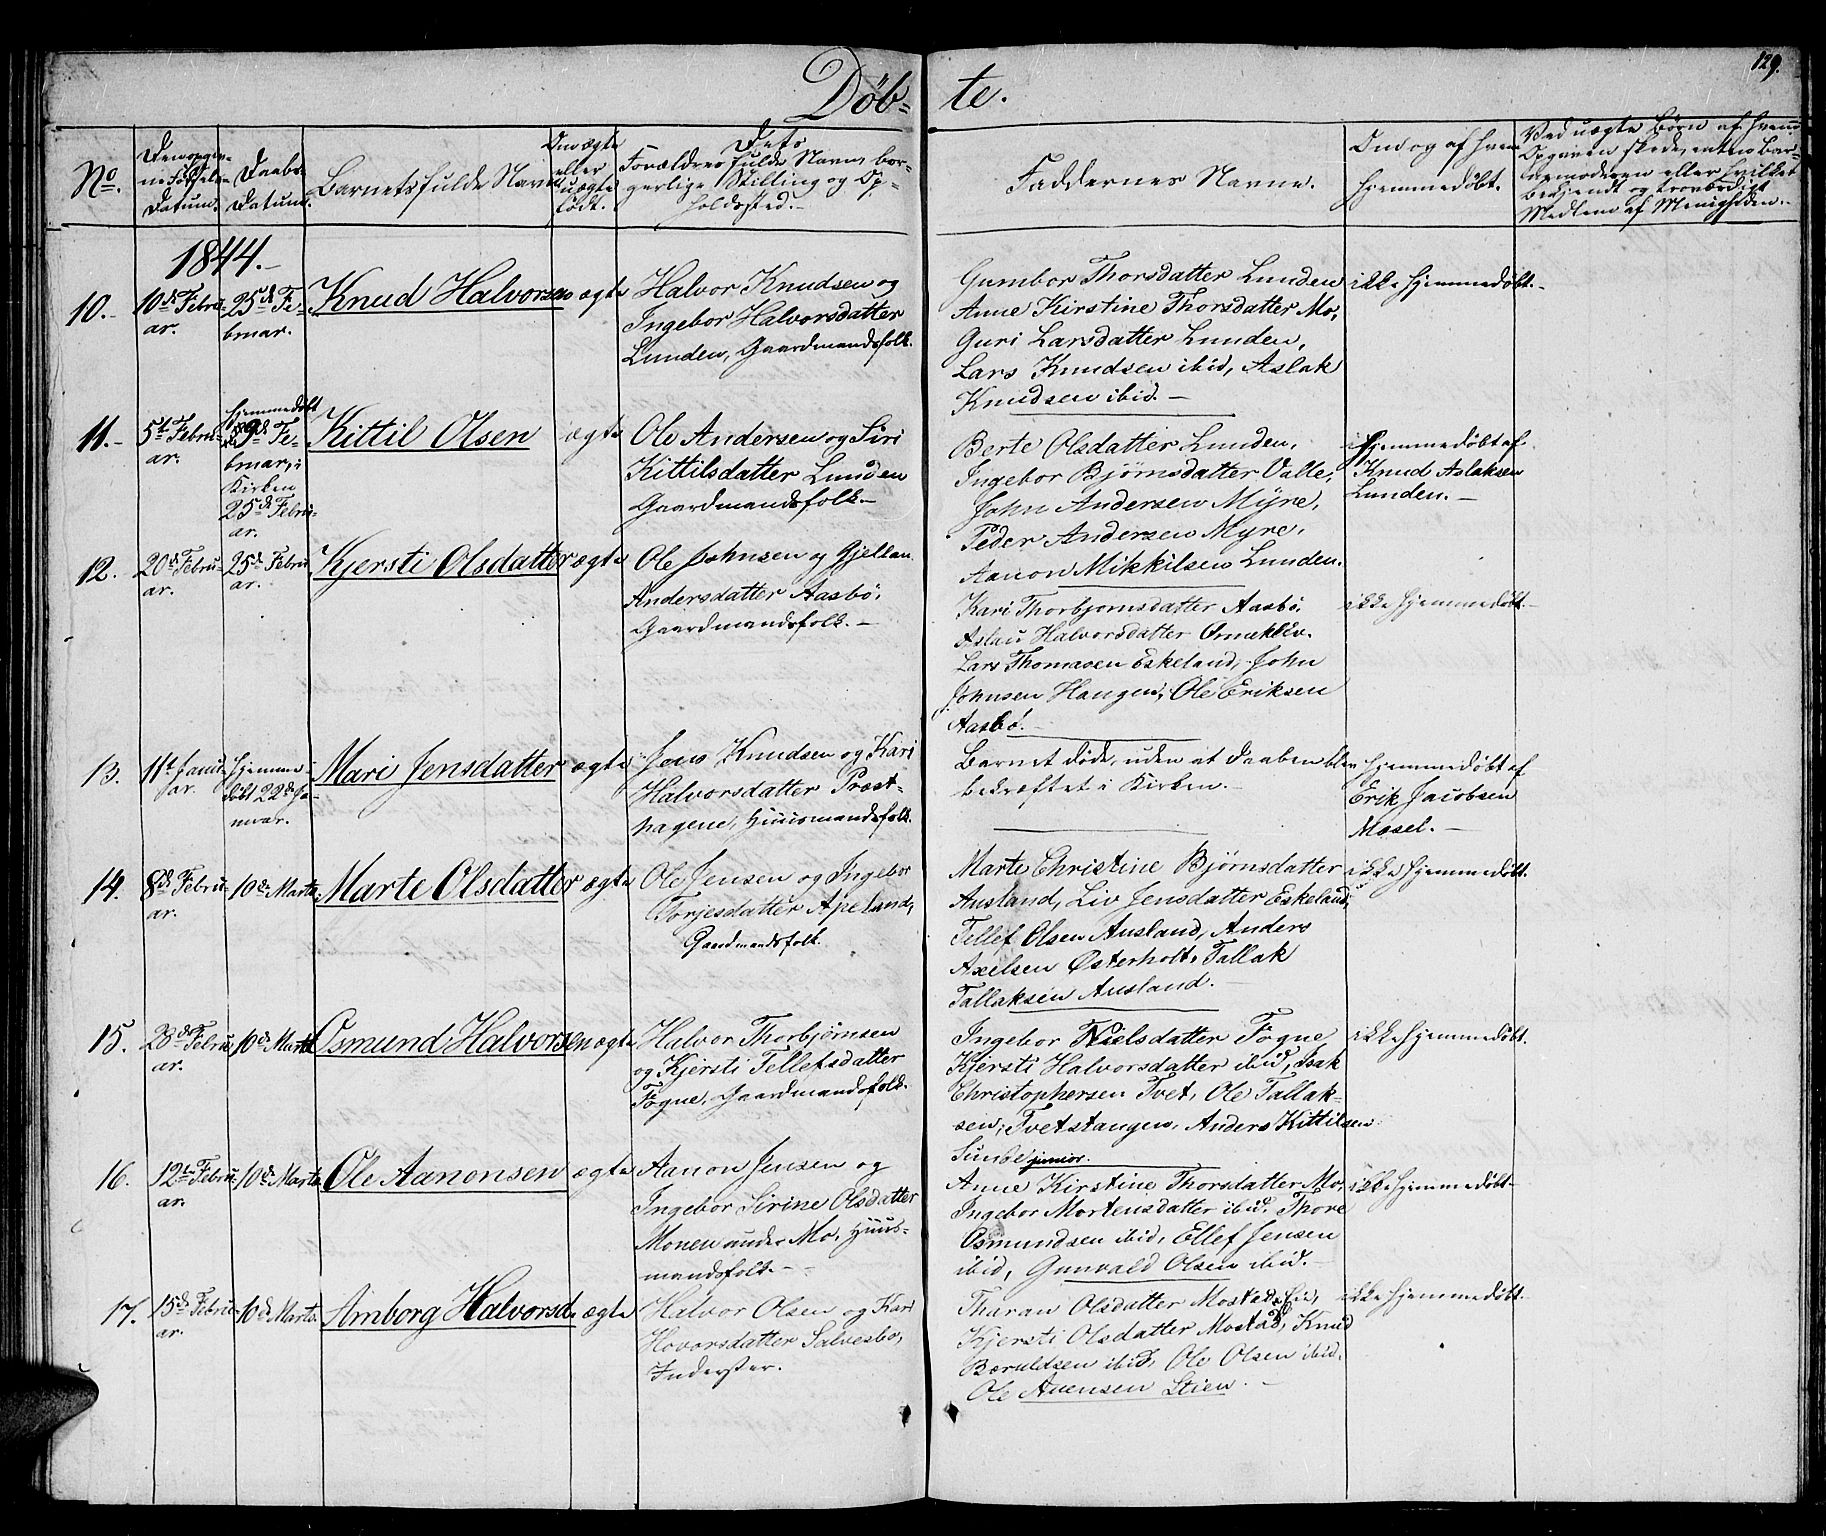 129.
Døb-te.
No.
Den opgivne Fødsels Datum.
Daabs-Datum.
Barnets fulde Navn
Om ægte eller uægte født.
Dets Forældres fulde Navn, borgerlige Stilling og Opholdssted.-
Faddernes Navne.
Om og af hvem hjemmedøbt.
Ved uægte Børn af hvem Opgaven skede, enten Barnemoderen eller hvilket bekjendt og troværdigt Medlem af Menigheden.-
1844.-
10.-
10de Febru-
ar.
25de Fe-
bruar.
Knud Halvorsen
ægte
Halvor Knudsen og
Ingebor Halvorsdatter
Lunden, Gaardmandsfolk.
Gumbor Thorsdatter Lunden
Anne Kirstine Thorsdatter Mo,
Guri Larsdatter Lunden,
Lars Knudsen ibid, Aslak
Knudsen ibid.-
ikke hjemmedøbt.-
11.-
5te Febru-
ar.
hjemmedøbt
9de Fe-
bruar, i
Kirken
25de Febru-
ar.
Kittil Olsen
ægte
Ole Andersen og Siri
Kittilsdatter Lunden
Gaardmandsfolk.-
Berte Olsdatter Lunden,
Ingebor Bjørnsdatter Valle,
John Andersen Myre,
Peder Andersen Myre,
Aanon Mikkilsen Lunden.
hjemmedøbt af
Knud Aslaksen
Lunden.-
12.
20de Febru-
ar.
25de Febru-
ar.
Kjersti Olsdatter
ægte
Ole Johnsen og Gjellau
Andersdatter Aasbø,
Gaardmandsfolk.-
Kari Thorbjornsdatter Aasbø,
Aslau Halvorsdatter Ørnekliv.
Lars Thomasen Eskeland, John
Johnsen Haugen, Ole Eriksen
Aasbø.-
ikke hjemmedøbt.-
13.
11te Janu-
ar.
hjemme-
døbt 22de Ja-
nuar.
Mari Jensdatter
ægte
Jens Knudsen og Kari
Halvorsdatter Præst-
hagene, Huusmandsfolk.
Barnet døde, uden at Daaben blev
bekræftet i Kirken.-
hjemmedøbt af
Erik Jacobsen
Mosel.-
14.
8de Febru-
ar.
10de Marts.
Marte Olsdatter
ægte
Ole Jensen og Ingebor
Torjesdatter Apeland,
Gaardmandsfolk.
Marte Christine Bjørnsdatter
Ausland, Liv Jensdatter Eskeland,
Tellef Olsen Ausland, Anders
Axelsen Østerholt, Tallak
Tallaksen Ausland.-
ikke hjemmedøbt.
15.
23de Febru-
ar.
10de Marts
Osmund Halvorsen
ægte
Halvor Thorbjørnsen
og Kjersti Tellefsdatter
Fogne, Gaardmandsfolk.
Ingebor Nielsdatter Fogne,
Kjersti Halvorsdatter ibid, Isak
Christophersen Tvet, Ole Tallak-
sen, Tvetstangen, Anders Kittilsen
Sunde junior.
ikke hjemmedøbt.
16.
12te Febru-
ar.
10de Marts.
Ole Aanonsen
ægte
Aanon Jensen og
Ingebor Sirine Olsdatter
Monen under Mo, Huus-
mandsfolk.-
Anne Kirstine Thorsdatter Mo,
Ingebor Mortensdatter ibid. Thore
Osmundsen ibid, Ellef Jensen
ibid, Gunvald Olsen ibid.-
ikke hjemmedøbt-
17.
15de Febru-
ar.
10de Marts.
Amborg Halvorsd.
ægte
Halvor Olsen og Kari
Hovorsdatter Salvesbo,
Inderster.
Tharan Olsdatter Mostad,
Kjersti Olsdatter Mostad, Knud
Beruldsen ibid, Ole Olsen ibid,
Ole Auensen Stien.-
ikke hjemmedøbt.